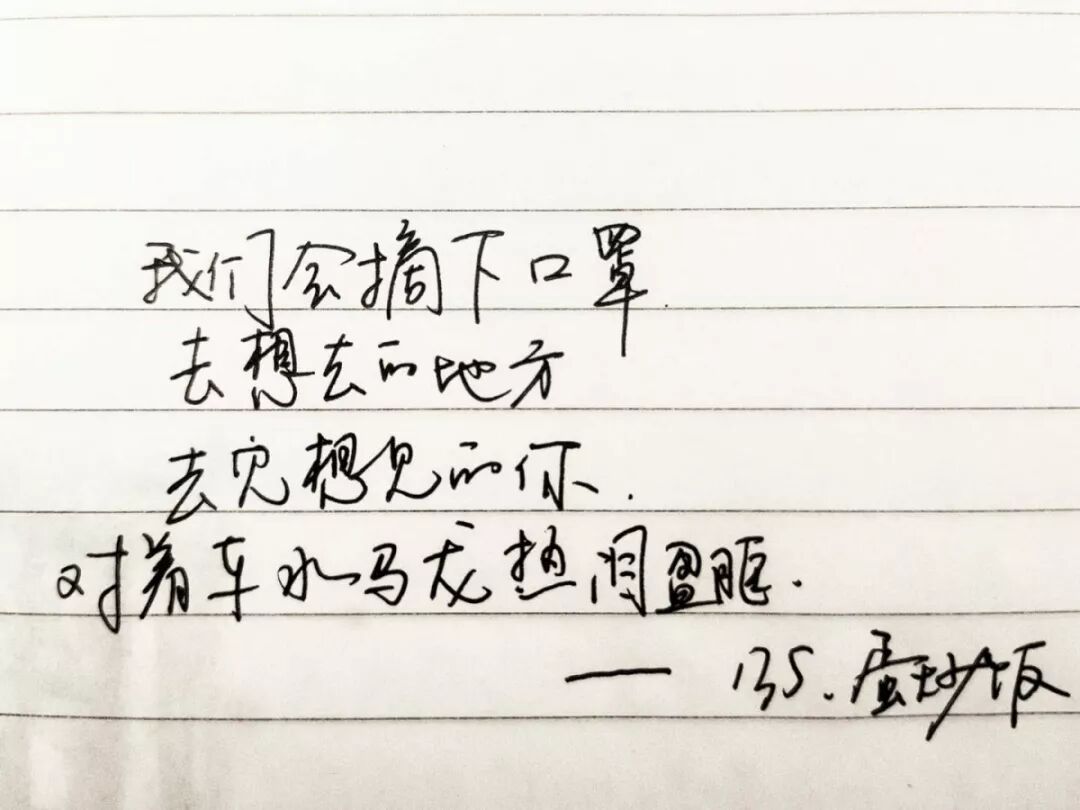 我们会摘下口罩
去想去的地方
去见想见的你.
对着车水马龙热泪盈眶.
—— 135.蛋炒饭